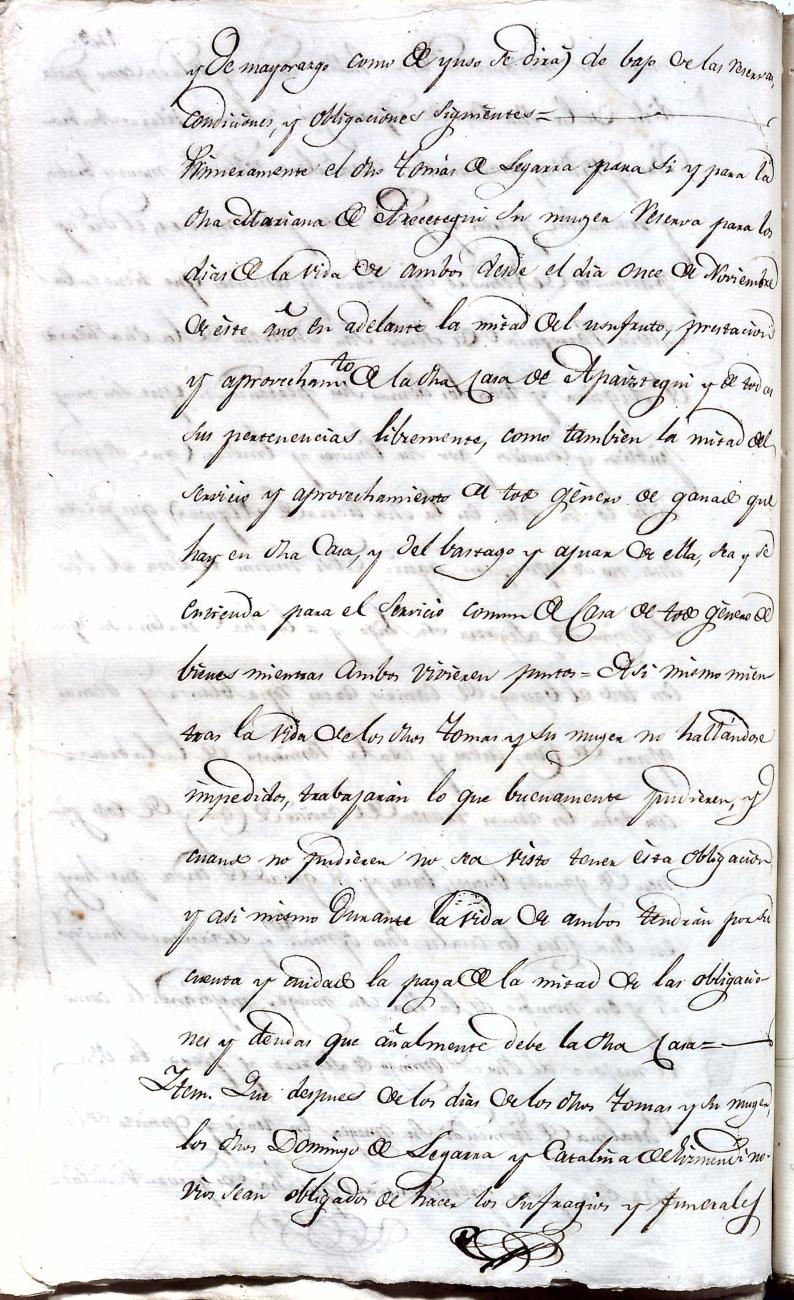 y De mayorazgo como de yuso se dirá) de bajo de las reservas,
condiciones, y obligaciones siguientes=
Primeramente el dho Tomás de Legarra para si y para la
dha Mariana de Arocetegui su muger reserva para los
dias de la vida de ambos desde el dia once de Noviembre
de este año en adelante la mitad del usufruto, prestacion
y aprovecham.to de la dha Casa de Apaiztegui y de todas
sus pertenencias libremente, como tambien la mitad del
servicio y aprovechamiento de todo género de ganado que
hay en dha Casa, y del bastago y ajuar de ella, sea y se
entienda para el servicio comun de Casa de todo género de
bienes mientras ambos vivieren juntos= Asi mismo mien
tras la vida de los dhos Tomas y su muger no hallándose
impedidos, trabajarán lo que buenamente pudieren, y
cuando no pudieren no sea visto tener ésta obligacion
y asi mismo durante la vida de ambos tendrán por su
cuenta y cuidado la paga de la mitad de las obligacio-
nes y deudas que añalmente debe la dha Casa=
Item. Que despues de los dias de los dhos Tomas y su muger,
los dhos Domingo de Legarra y Catalina de no-
vios sean obligados de hacer los sufragios y funerales